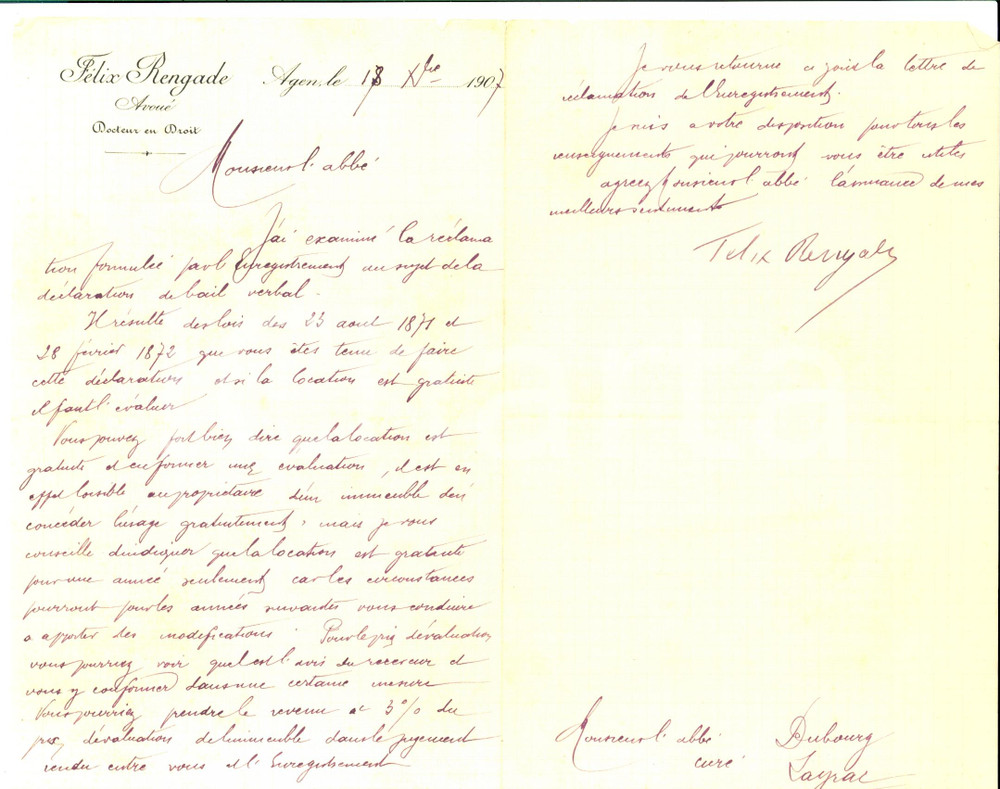 Félix Rengade
Avoué
Docteur en Droit
Agen, le 18 Xbre 1907
Monsieur l'abbé
J'ai examiné la réclama
tion formulée par l'Enregistrement au sujet de la
déclaration de bail verbal.
Il résulte des lois des 23 aout 1871 et
28 février 1872 que vous êtes tenu de faire
cette déclaration et si la location est gratuite
il faut l'évaluer
Vous pouvez fort bien dire que la location est
gratuite et en former une évaluation, il est en
effet loisible au propriétaire d'un immeuble d'en
concéder l'usage gratuitement, mais je vous
conseille d'indiquer que la location est gratuite
pour une année seulement car les circonstances
pourront pour les années suivantes vous conduire
a apporter des modifications. Pour le prix d'évaluation
vous pourriez voir quel est l'avis du receveur et
vous y conformer dans une certaine mesure
Vous pourriez prendre le revenu a 3% du
prix d'évaluation de l'immeuble dans le jugement
rendu entre vous et l'Enregistrement
Je vous retourne ci joint la lettre de
réclamation de l'Enregistrement.
Je suis a votre disposition pour tous les
renseignements qui pourront vous être utiles
agréez Monsieur l'abbé l'assurance de mes
meilleurs sentiments
Felix Rengade
Monsieur l'abbé Dubourg
curé Layrac